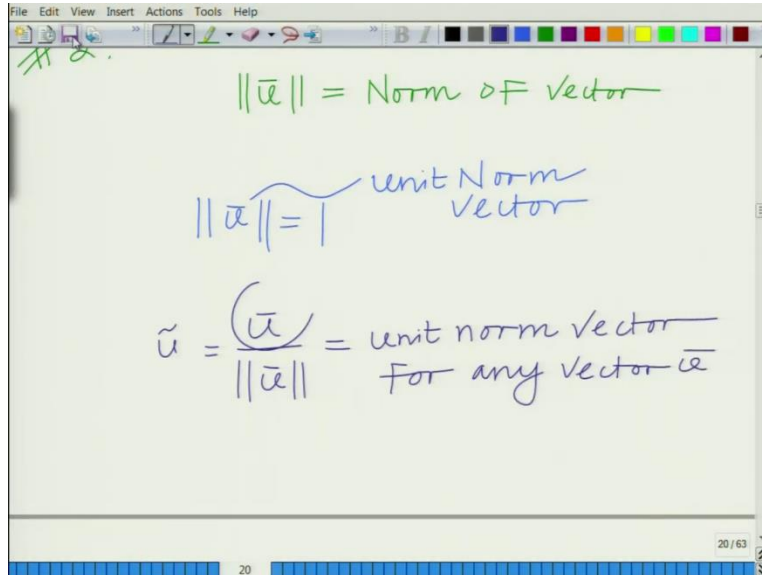 File Edit View Insert Actions Tools Help
B I
# 2.
||ū|| = Norm OF Vector
||ū|| = 1 unit Norm
Vector
ũ = ū / ||ū|| = unit norm vector
For any vector ū
20/63
20